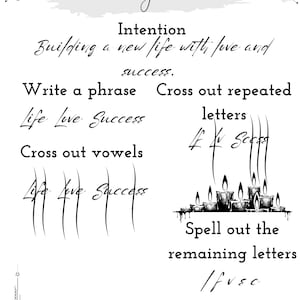 Intention
Building a new life with love and
success.
Write a phrase
Life Love Success
Cross out vowels
Life Love Success
Cross out repeated
letters
Lf Lv Scess
Spell out the
remaining letters
l f v s c